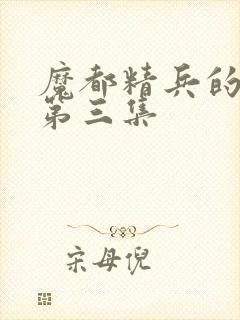 魔都精兵的
第三集
宋母倪